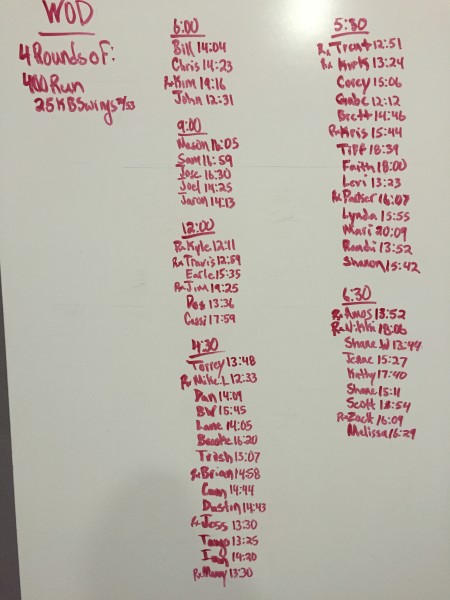 WOD
4 Rounds of:
400 Run
25 KB Swings
6:00
Bill 14:04
Chris 14:23
Rx Kim 19:16
John 12:31
9:00
Mason 16:05
Sam 11:59
Jose 16:30
Joel 14:25
Jaron 14:13
12:00
Rx Kyle 12:11
Rx Travis 12:59
Earle 15:35
Rx Jim 19:25
13:36
Cassi 17:59
4:30
Torrey 13:48
Rx Mike L 12:33
Dan 14:09
BW 15:45
Lane 14:05
Brooke 16:20
Trish 13:07
Rx Brian 14:58
Cam 14:44
Dustin 14:43
Rx Joss 13:30
Tango 13:25
Ian 14:20
Rx Manny 13:30
5:30
Rx Trent 12:51
Rx Kirk 13:24
Corey 15:06
Gabe 12:12
Brett 14:46
Rx Kris 15:44
Tiff 18:39
Faith 18:00
Levi 13:23
Rx Parker 16:07
Lynda 15:55
Mari 20:09
Randi 13:52
Sharon 15:42
6:30
Rx Amos 13:52
Rx Nikki 18:06
Shane W 13:44
Jenne 15:27
Kathy 17:40
Shane 15:11
Scott 18:54
Rx Zack 16:09
Melissa 16:29